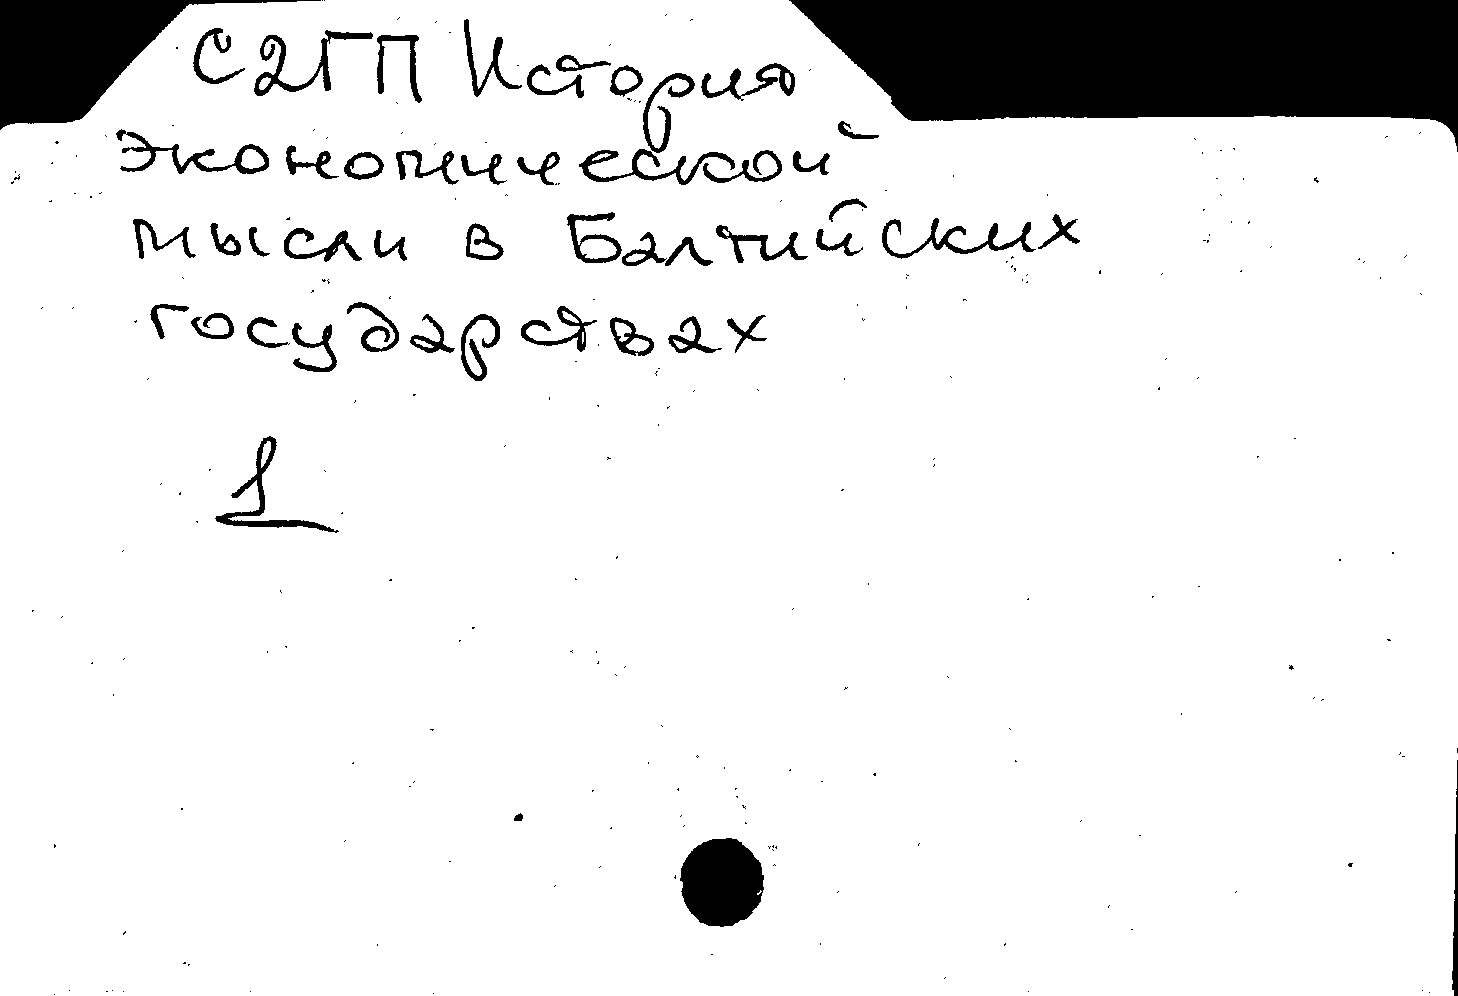 С2ГП История
экономической
мысли в Балтийских
государствах
1